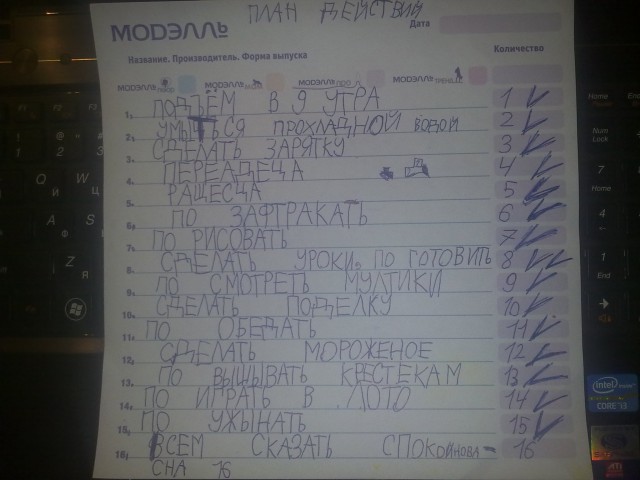 ПЛАН ДЕЙСТВИЙ
МОДЭЛЛЬ
Дата
Название. Производитель. Форма выпуска
Количество
1. ПОДЪЁМ В 9 УТРА 1
2. УМЫТЬСЯ ПРОХЛАДНОЙ ВОДОЙ 2
3. СДЕЛАТЬ ЗАРЯТКУ 3
4. ПЕРЕАДЕЦА 4
5. РАЦЕСЦА 5
6. ПО ЗАФТРАКАТЬ 6
7. ПО РИСОВАТЬ 7
8. СДЕЛАТЬ УРОКИ, ПО ГОТОВИТЬ 8
9. ПО СМОТРЕТЬ МУЛТИКИ 9
10. СДЕЛАТЬ ПОДЕЛКУ 10
11. ПО ОБЕДАТЬ 11
12. СДЕЛАТЬ МОРОЖЕНОЕ 12
13. ПО ВЫШЫВАТЬ КРЕСТЕКАМ 13
14. ПО ИГРАТЬ В ЛОТО 14
15. ПО УЖЫНАТЬ 15
16. ВСЕМ СКАЗАТЬ СПОКОЙНОВА- 16
СНА 16
Home
Num Lock
7
Home
4
1
End
intel
CORE i3